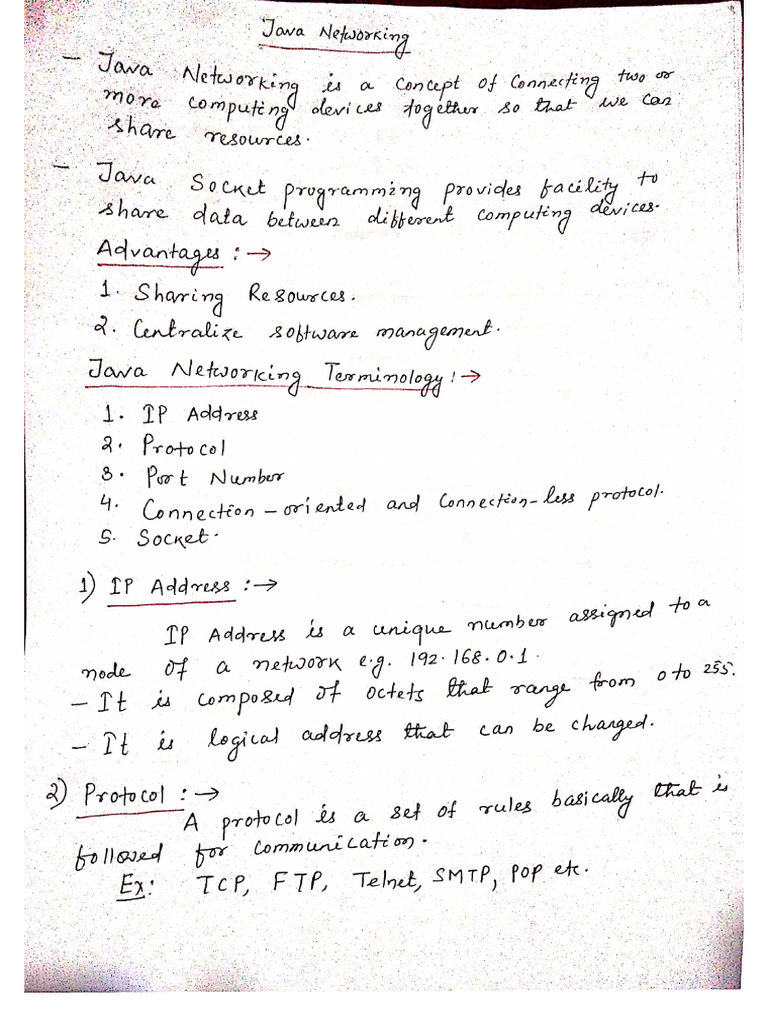 Java Networking
- Java Networking is a concept of connecting two or
more computing devices together so that we can
share resources.
- Java Socket programming provides facility to
share data between different computing devices.
Advantages :→
1. Sharing Resources.
2. Centralize software management.
Java Networking Terminology :→
1. IP Address
2. Protocol
3. Port Number
4. Connection-oriented and connection-less protocol.
5. Socket.
1) IP Address :→
IP Address is a unique number assigned to a
node of a network e.g. 192.168.0.1.
- It is composed of octets that range from 0 to 255.
- It is logical address that can be changed.
2) Protocol :→
A protocol is a set of rules basically that is
followed for communication.
Ex: TCP, FTP, Telnet, SMTP, POP etc.